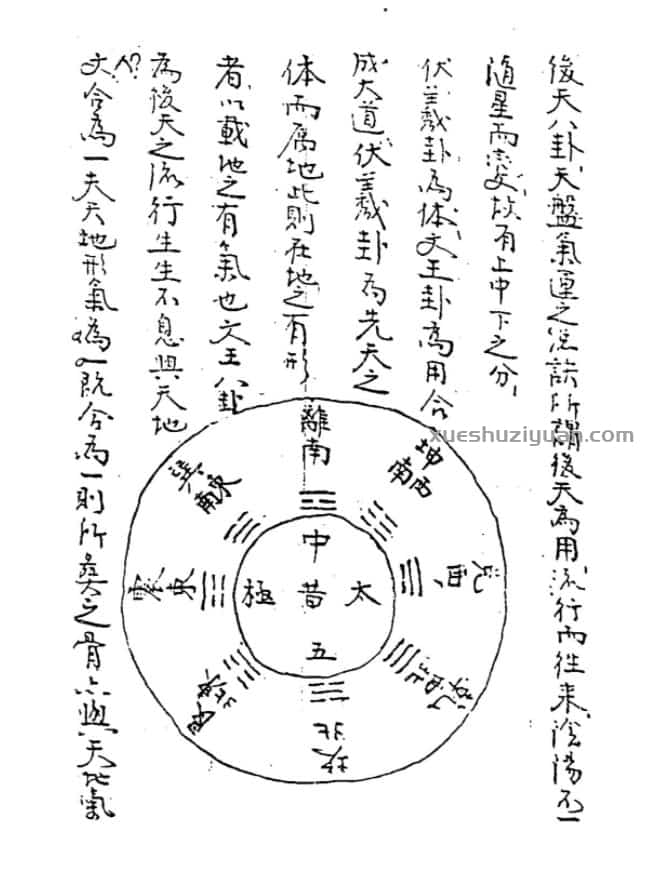 後天八卦天盤氣運之説訣所謂後天為用流行而往来陰陽不一
隨星而變故有上中下之分
伏羲卦為体文王卦為用合
成大道伏羲卦為先天之
体而属地此則在地之有形
者以載地之有氣也文王八卦
為後天之流行生生不息與天地
文合為一夫天地形氣為一既合為一則所奠之骨亦與天地氣
離南
坤西南
兌西
乾西北
坎北
艮東北
震東
巽東南
中
太昔極
五
xueshuziyuan.com